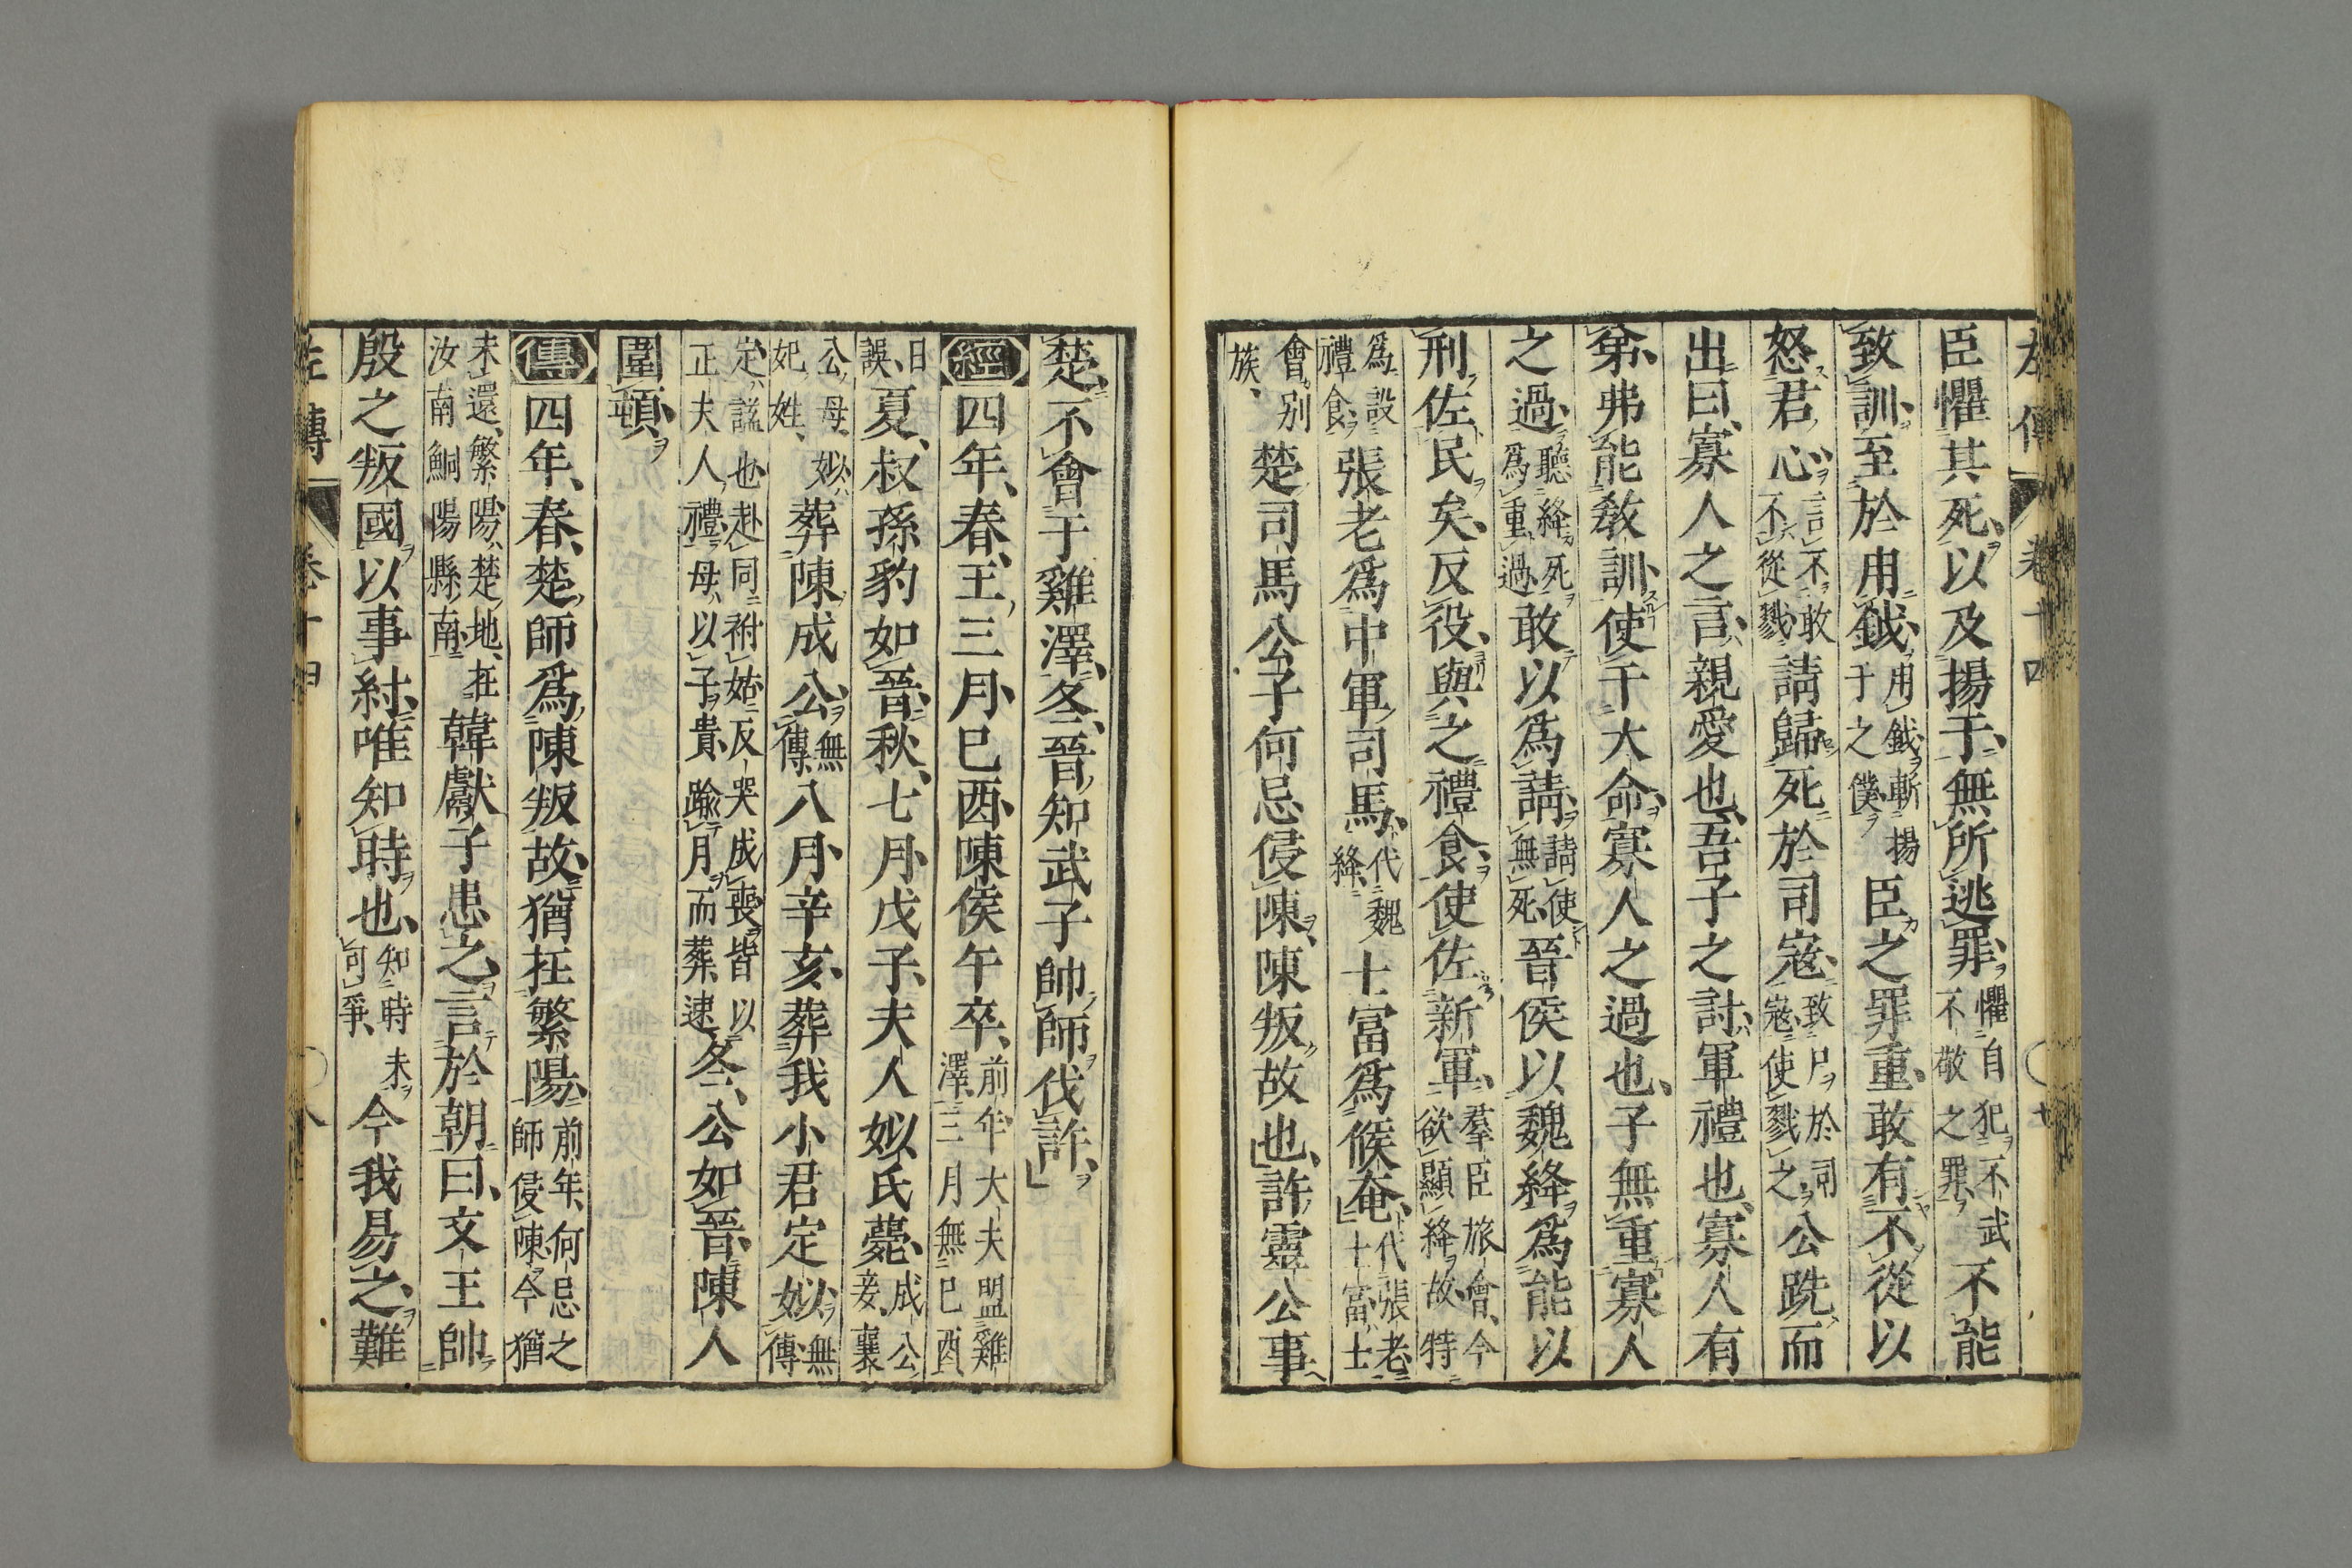 左傳 卷十四 七
臣懼其死、以及揚干、無所逃罪、懼自犯不武不敬之罪、不能
致訓、至於用鉞、用鉞斬揚干之僕、臣之罪重、敢有不從以
怒君心、言不敢不從戮、請歸死於司寇、致尸於司寇使戮之、公跣而
出曰、寡人之言、親愛也、吾子之討、軍禮也、寡人有
弟、弗能敎訓、使干大命、寡人之過也、子無重寡人
之過、聽絳死爲重過、敢以爲請、請使無死、晉侯以魏絳爲能以
刑佐民矣、反役、與之禮食、使佐新軍、羣臣旅會、今欲顯絳故特
爲設禮食、張老爲中軍司馬、代魏絳、士富爲候奄、代張老、士富、士
會别族、楚司馬公子何忌侵陳、陳叛故也、許靈公事
楚、不會于雞澤、冬、晉知武子帥師伐許、
經四年、春、王三月、己酉、陳侯午卒、前年大夫盟雞澤、三月無己酉、
日誤、夏、叔孫豹如晉、秋、七月、戊子、夫人姒氏薨、成公妾、襄
公母、姒、杞姓、葬陳成公、無傳、八月、辛亥、葬我小君定姒、無傳
定、謚也、赴同祔姑、反哭成喪、皆以正夫人禮、母以子貴、踰月而葬、逮、冬、公如晉、陳人
圍頓、
傳四年、春、楚師爲陳叛故、猶在繁陽、前年、何忌之師侵陳、今猶
未還、繁陽、楚地、在汝南鮦陽縣南、韓獻子患之、言於朝曰、文王帥
殷之叛國、以事紂、唯知時也、知時未可爭、今我易之、難
左傳 卷十四 八